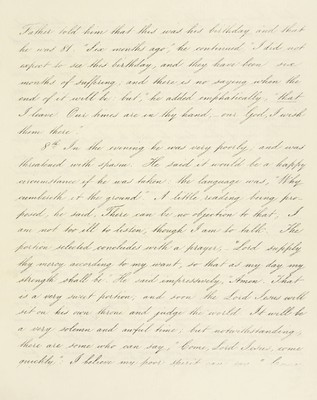 Father told him that this was his birthday and that
he was 81. "Six months ago," he continued "I did not
expect to see this birthday, and they have been six
months of suffering; and there is no saying when the
end of it will be but," he added emphatically, "that
I leave. Our times are in thy hand, our God, I wish
them there."
8th In the evening he was very poorly, and was
threatened with spasm. He said it would be a happy
circumstance if he was taken: the language was, "Why
cumbereth it the ground." A little reading being pro-
posed, he said, "There can be no objection to that, I
am not too ill to listen, though I am to talk." The
portion selected, concludes with a prayer, "Lord supply
thy mercy according to my want, so that as my day my
strength shall be." He said impressively, "Amen. That
is a very sweet portion; and soon the Lord Jesus will
sit on his own throne and judge the world. It will be
a very solemn and awful time; but notwithstanding,
there are some who can say, "Come, Lord Jesus, come
quickly." I believe my poor spirit can